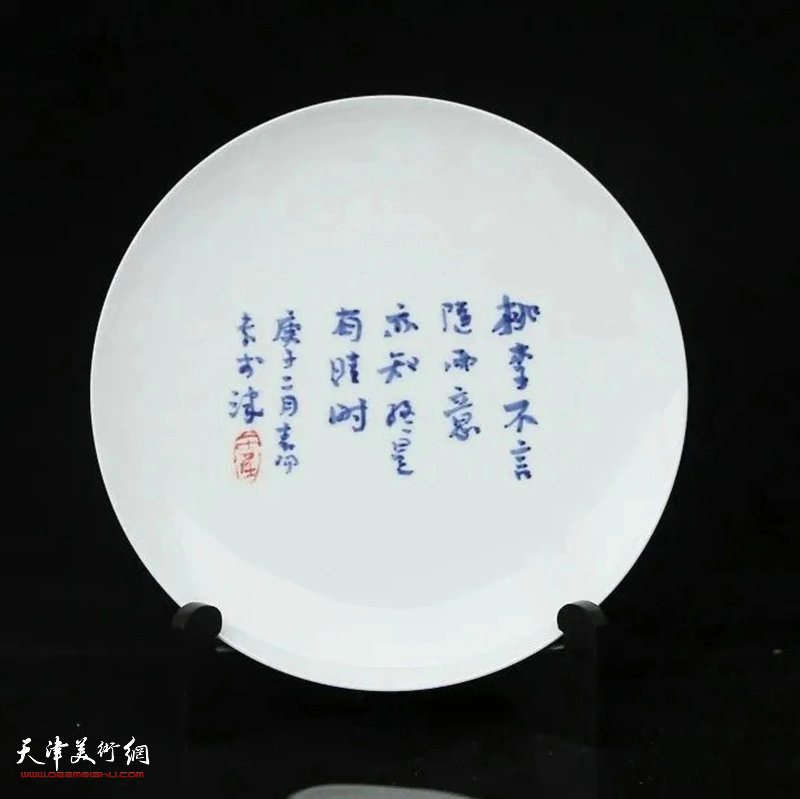 桃李不言
随雨意
亦知终是
有晴时
庚子二月春阳
于津
天津美術網
www.022meishu.com